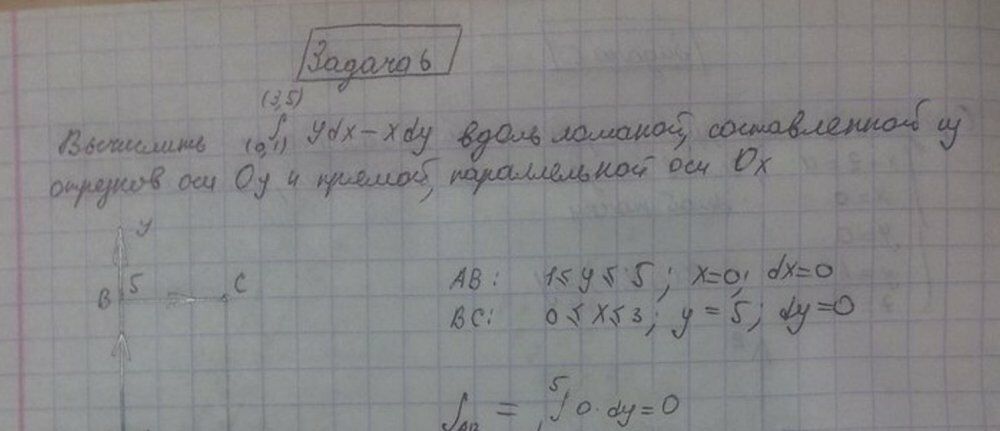 Задача 6
(3,5)
Вычислить ∫ ydx - xdy вдоль ломаной, составленной из
(0,1)
отрезков оси Oy и прямой, параллельной оси Ox
y
B 5 C
AB: 1≤y≤5; x=0; dx=0
BC: 0≤x≤3; y=5; dy=0
5
∫AB = ∫ 0·dy=0
1